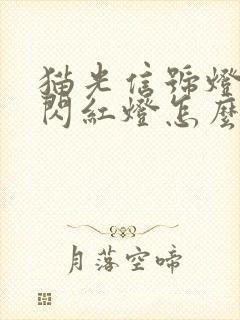 猫光信號燈
閃紅燈怎麼
月落空啼